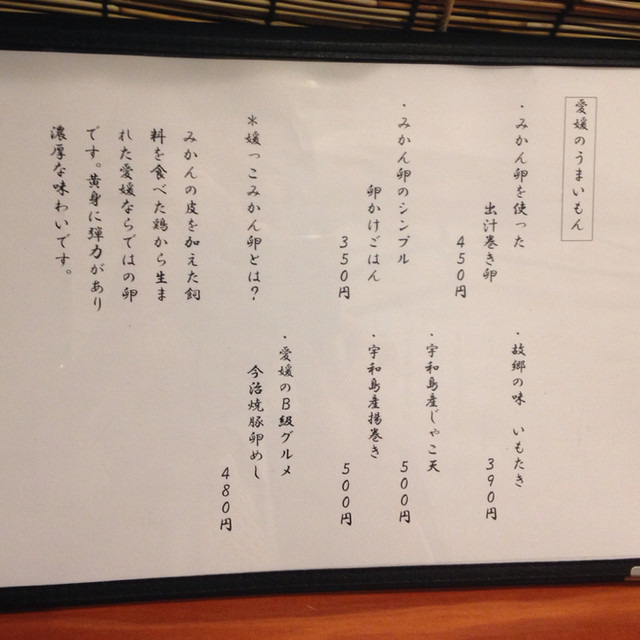 愛媛のうまいもん
・みかん卵を使った
出汁巻き卵
450円
・みかん卵のシンプル
卵かけごはん
350円
＊媛っこみかん卵とは？
みかんの皮を加えた飼
料を食べた鶏から生ま
れた愛媛ならではの卵
です。黄身に弾力があり
濃厚な味わいです。
・故郷の味 いもたき
390円
・宇和島産じゃこ天
500円
・宇和島産揚巻き
500円
・愛媛のB級グルメ
今治焼豚卵めし
480円